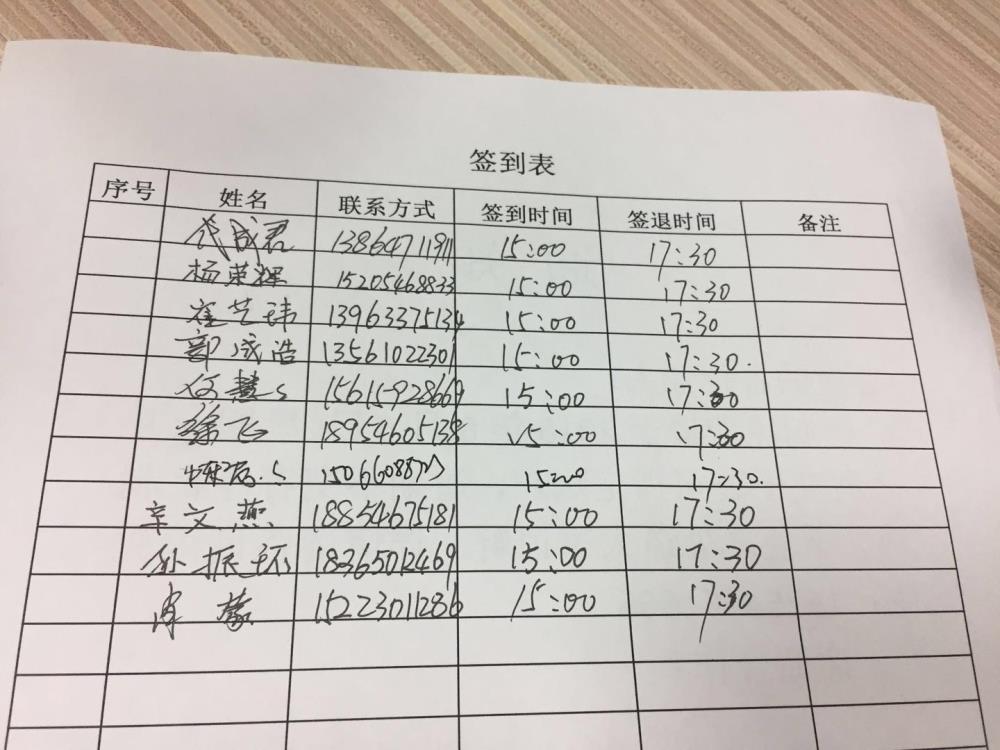 签到表
序号 姓名 联系方式 签到时间 签退时间 备注
代成君 13864711911 15:00 17:30
杨荣辉 15205468833 15:00 17:30
崔艺玮 13963375134 15:00 17:30
郭成浩 13561022301 15:00 17:30.
何慧 15615928669 15:00 17:30
徐飞 18954605138 15:00 17:30
15:00 17:30.
辛文燕 18854675181 15:00 17:30
孙振环 18365012469 15:00 17:30
15223011286 15:00 17:30